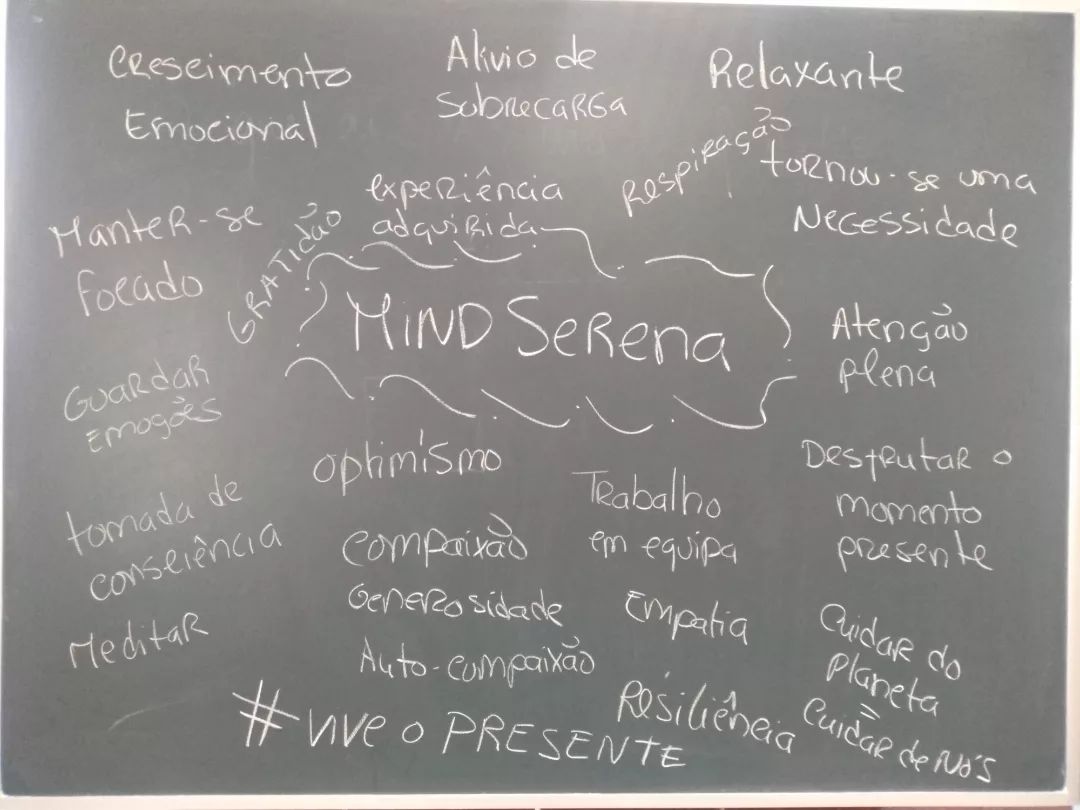 Crescimento
Emocional
Alivio de
Sobrecarga
Relaxante
Respiração
tornou-se uma
Necessidade
experiência
adquirida
Manter-se
focado
GRATIDÃO
MIND Serena
Atenção
plena
Guardar
Emoções
optimismo
Trabalho
em equipa
Desfrutar o
momento
presente
tomada de
consciência
compaixão
Generosidade
Auto-compaixão
Empatia
Meditar
Cuidar do
Planeta
=
Cuidar de Nós
Resiliência
#VIVE O PRESENTE